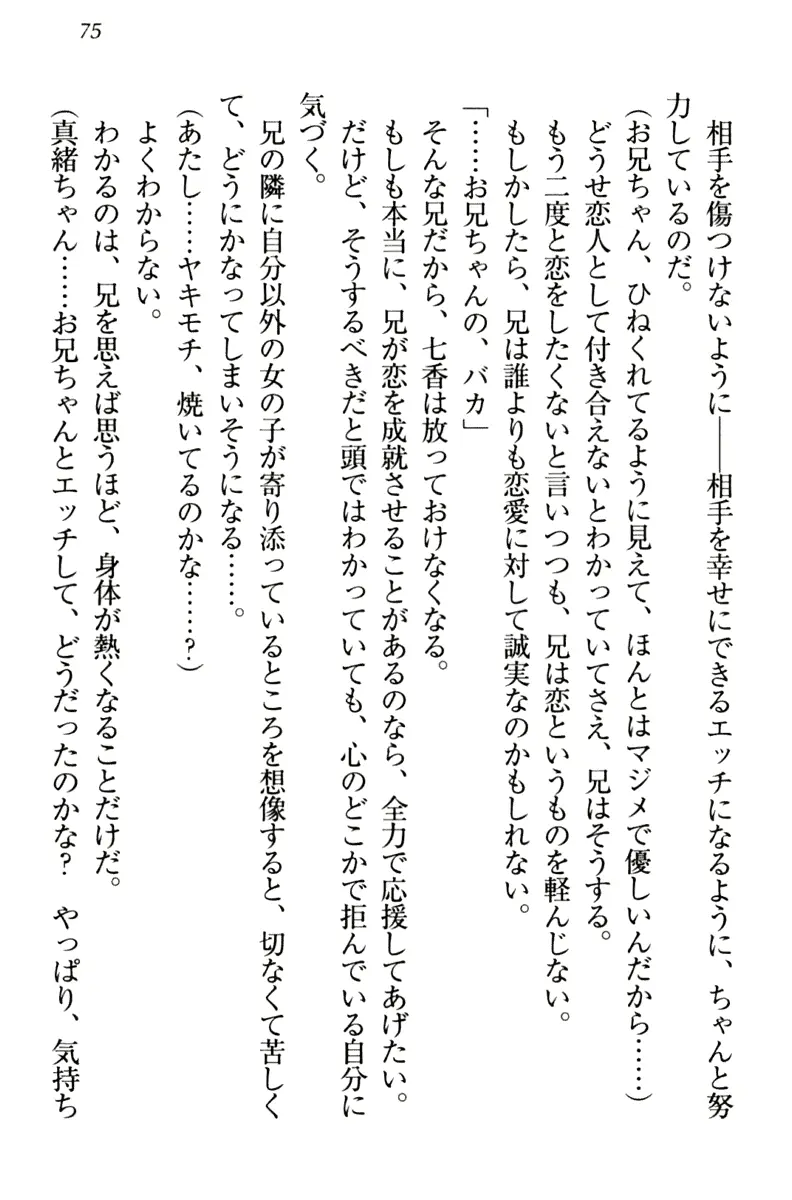 75
相手を傷つけないように――相手を幸せにできるエッチになるように、ちゃんと努
力しているのだ。
（お兄ちゃん、ひねくれてるように見えて、ほんとはマジメで優しいんだから……）
どうせ恋人として付き合えないとわかっていてさえ、兄はそうする。
もう二度と恋をしたくないと言いつつも、兄は恋というものを軽んじない。
もしかしたら、兄は誰よりも恋愛に対して誠実なのかもしれない。
「……お兄ちゃんの、バカ」
そんな兄だから、七香は放っておけなくなる。
もしも本当に、兄が恋を成就させることがあるのなら、全力で応援してあげたい。
だけど、そうするべきだと頭ではわかっていても、心のどこかで拒んでいる自分に
気づく。
兄の隣に自分以外の女の子が寄り添っているところを想像すると、切なくて苦しく
て、どうにかなってしまいそうになる……。
（あたし……ヤキモチ、焼いてるのかな……？）
よくわからない。
わかるのは、兄を思えば思うほど、身体が熱くなることだけだ。
（真緒ちゃん……お兄ちゃんとエッチして、どうだったのかな？　やっぱり、気持ち